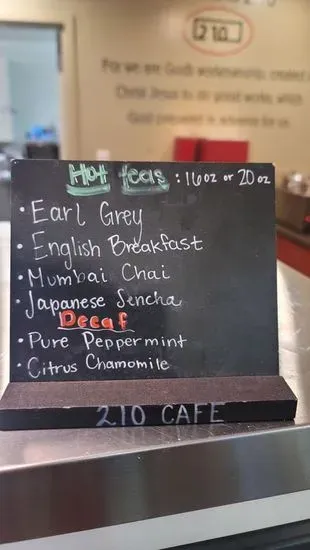 210
For we are God's workmanship, created
Christ Jesus to do good works, which
God prepared in advance for us
Hot Teas : 16oz or 20oz
• Earl Grey
• English Breakfast
• Mumbai Chai
• Japanese Sencha
Decaf
• Pure Peppermint
• Citrus Chamomile
210 CAFE